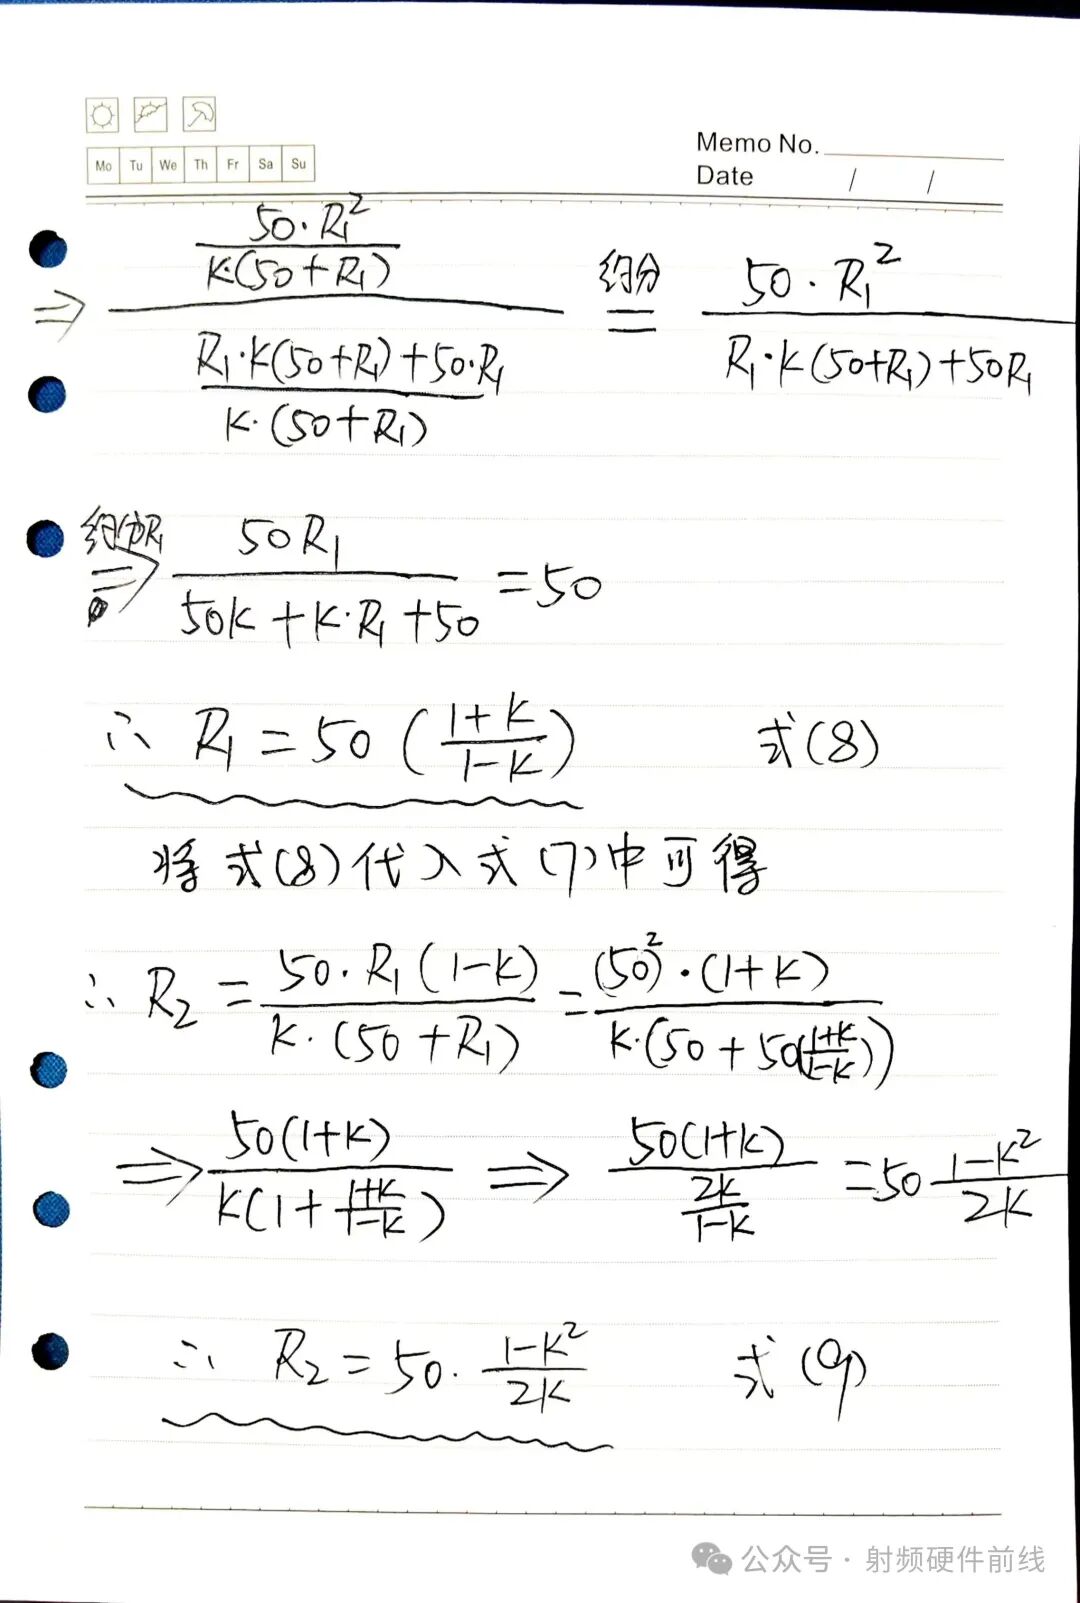 Memo No.
Mo Tu We Th Fr Sa Su
Date / /
⇒ (50·R₁²/(K·(50+R₁)))/((R₁·K(50+R₁)+50·R₁)/(K·(50+R₁))) 约分= 50·R₁²/(R₁·K(50+R₁)+50R₁)
约掉R₁ ⇒ 50R₁/(50K+K·R₁+50) =50
∴ R₁=50((1+K)/(1-K)) 式(8)
将式(8)代入式(7)中可得
∴ R₂=50·R₁(1-K)/(K·(50+R₁))=(50)²·(1+K)/(K·(50+50((1+K)/(1-K))))
⇒ 50(1+K)/(K(1+(1+K)/(1-K))) ⇒ 50(1+K)/(2K/(1-K)) =50 (1-K²)/(2K)
∴ R₂=50·(1-K²)/(2K) 式(9)
公众号·射频硬件前线